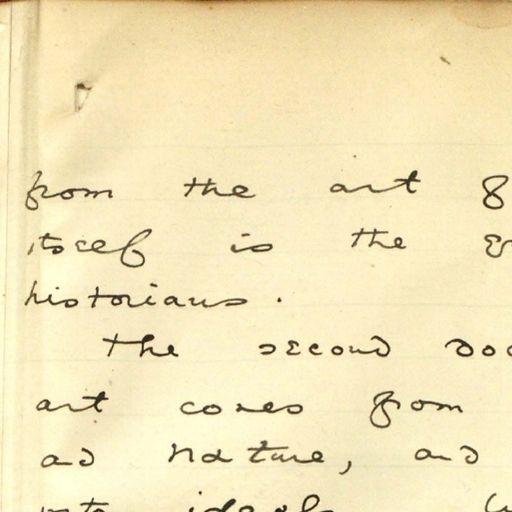 from the art
itself is the
historians.
The second
art comes from
and Nature, and
into ideals.